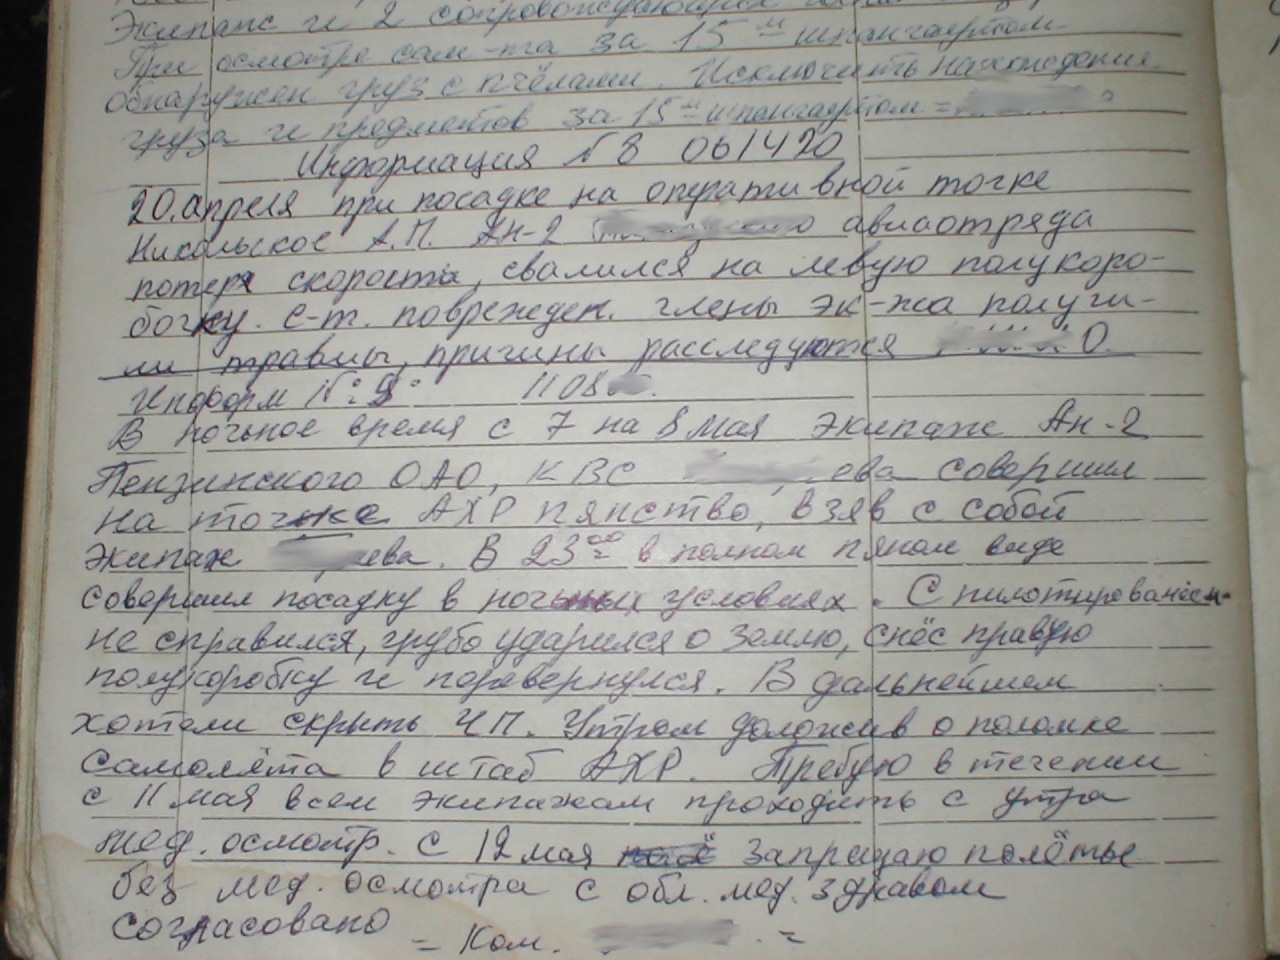 Экипаж и 2 сопровождающих
При осмотре сам-та за 15 м шпангоутом
обнаружен груз с пчёлами. Исключить нахождение
груза и предметов за 15 м шпангоутом =
Информация №8 061420
20.апреля при посадке на оперативной точке
Никольское А.П. Ан-2 авиаотряда
потеря скорости, свалился на левую полукоро-
бочку. С-т. поврежден. члены эк-жа получи-
ли травмы, причины расследуются О.
Информ №:9: 1108
В ночьное время с 7 на 8 мая экипаж Ан-2
Пензинского ОАО, КВС ева совершил
на точке АХР пянство, взяв с собой
экипаж ева. В 23 00 в полном пяном виде
совершил посадку в ночьных условиях. С пилотированием
не справился, грубо ударился о землю, снёс правую
полукоробку и перевернулся. В дальнейшем
хотели скрыть ЧП. Утром доложив о поломке
самолёта в штаб АХР. Требую в течении
с 11 мая всем экипажам проходить с утра
мед. осмотр. С 12 мая запрещаю полёты
без мед. осмотра с обл. мед. здравом
согласовано = Ком. =